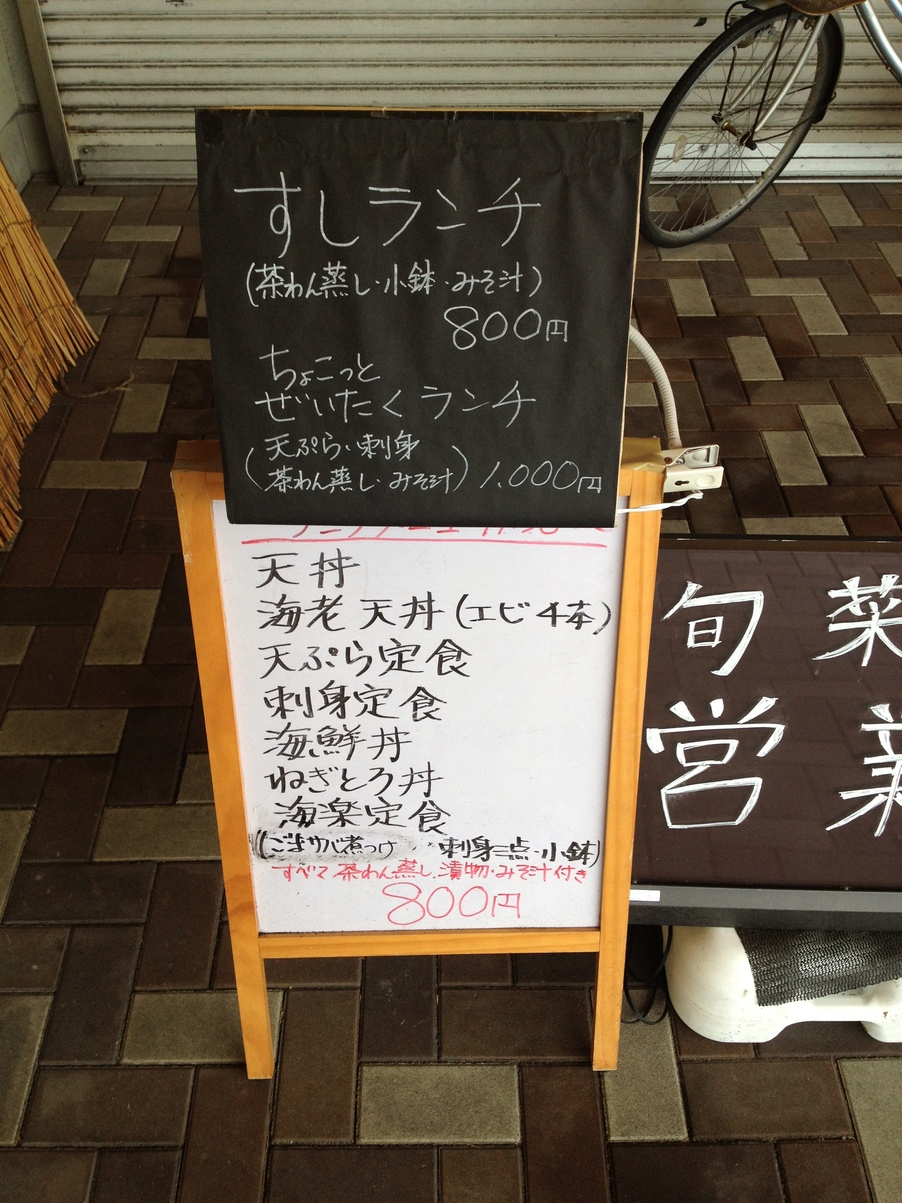 すしランチ
(茶わん蒸し・小鉢・みそ汁)
800円
ちょこっと
ぜいたくランチ
(天ぷら・刺身
茶わん蒸し・みそ汁) 1,000円
天丼
海老天丼(エビ4本)
天ぷら定食
刺身定食
海鮮丼
ねぎとろ丼
海楽定食
(ごまサバ煮つけ 刺身三点・小鉢)
すべて茶わん蒸し、漬物・みそ汁付き
800円
旬 菜
営 業